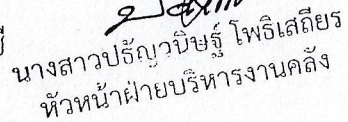 นางสาวปธัญวบิษฐ์ โพธิเสถียร
หัวหน้าฝ่ายบริหารงานคลัง